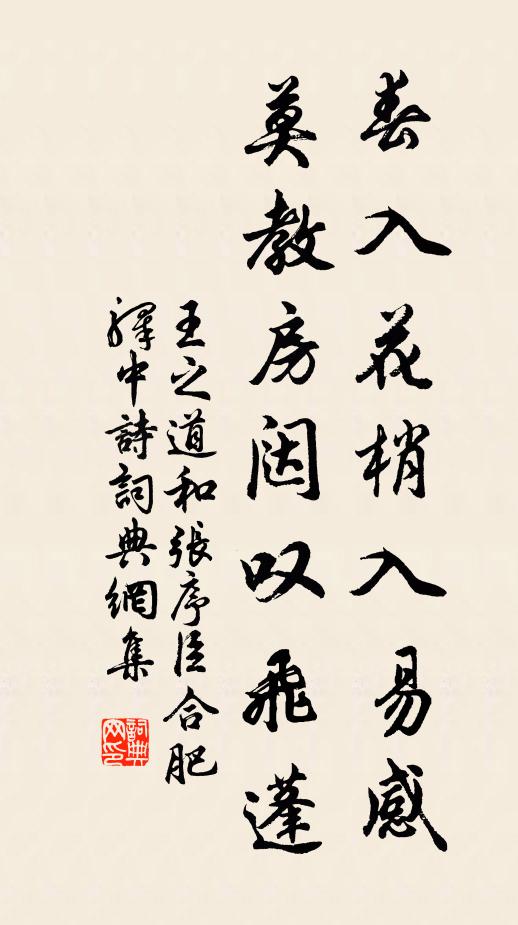 春入花梢入易感
莫教房闼叹飛蓬
王之道和張序臣合肥
驛中詩詞典網集
詞典
网印